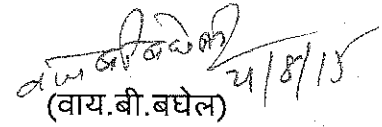 4/8/15
(वाय.बी.बघेल)